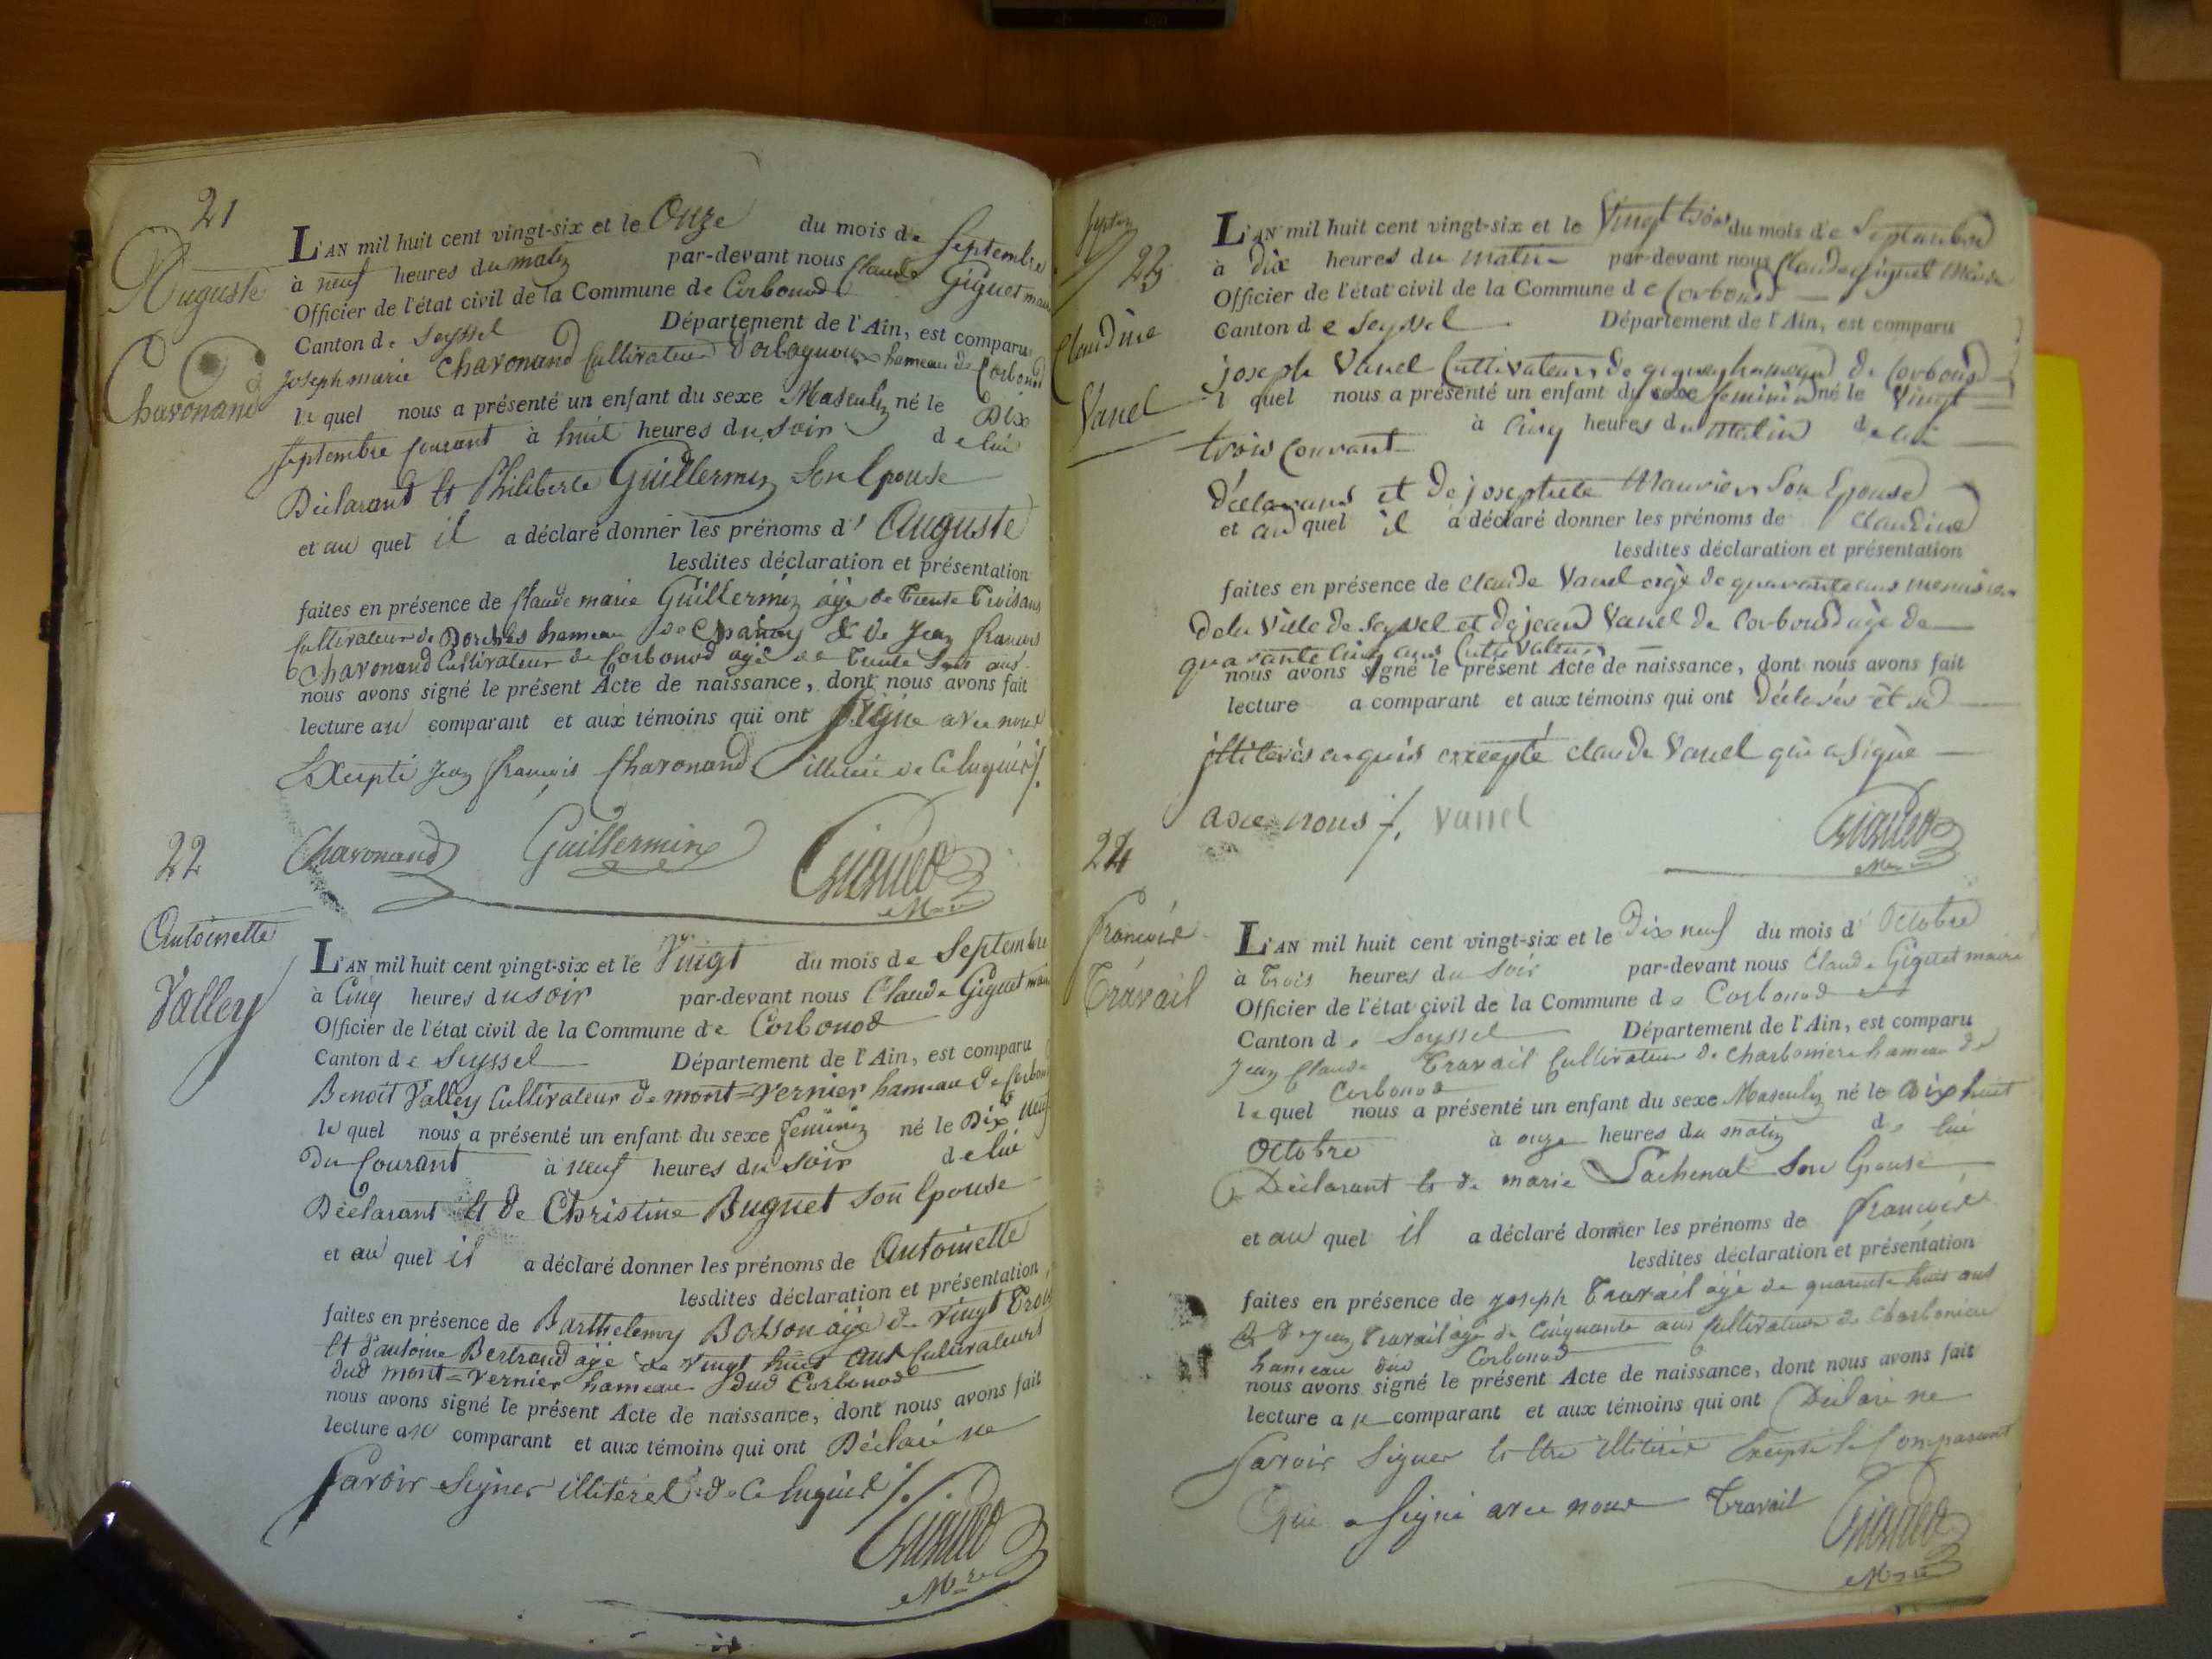 21
Auguste
Chavonand
L'AN mil huit cent vingt-six et le Onze du mois de Septembre
à neuf heures du matin par-devant nous Claude Giguet maire
Officier de l'état civil de la Commune de Corbonod
Canton de Seyssel Département de l'Ain, est comparu
Joseph marie Chavonand Cultivateur d'orbagnoux hameau de Corbonod
le quel nous a présenté un enfant du sexe Masculin né le Dix
septembre Courant à huit heures du soir de lui
Déclarant Et Philiberte Guillermin Son Epouse
et au quel il a déclaré donner les prénoms d' Auguste
lesdites déclaration et présentation
faites en présence de Claude marie Guillermin âgé de Trente Trois ans
Cultivateur de Dorches hameau de Chanay & de Jean francois
Chavonand Cultivateur de Corbonod agé de Trente ans
nous avons signé le présent Acte de naissance, dont nous avons fait
lecture au comparant et aux témoins qui ont Signé avec nous
Excepté Jean françois Chavonand illiteré de Ce Enquis /.
Chavonand Guillermin Giguet
Mre
22
Antoinette
Valley
L'AN mil huit cent vingt-six et le Vingt du mois de Septembre
à Cinq heures du soir par-devant nous Claude Giguet maire
Officier de l'état civil de la Commune de Corbonod
Canton de Seyssel Département de l'Ain, est comparu
Benoit Valley Cultivateur de mont=Vernier hameau de Corbonod
le quel nous a présenté un enfant du sexe féminin né le Dix neuf
Du Courant à neuf heures du soir de lui
Déclarant Et de Christine Buguet son Epouse
et au quel il a déclaré donner les prénoms de Antoinette
lesdites déclaration et présentation
faites en présence de Barthelemy Bosson agé de Vingt Trois
Et d'antoine Bertrand agé de vingt huit ans Cultivateurs
dud mont=Vernier hameau dud Corbonod
nous avons signé le présent Acte de naissance, dont nous avons fait
lecture au comparant et aux témoins qui ont Déclaré ne
Savoir Signer illiterés de Ce Enquis /.
Giguet
Mre
Septem
23
Claudine
Vanel
L'AN mil huit cent vingt-six et le Vingt trois du mois de Septembre
à dix heures du matin par-devant nous Claude giguet Maire
Officier de l'état civil de la Commune de Corbonod
Canton de Seyssel Département de l'Ain, est comparu
joseph Vanel Cultivateur de gignez hameau de Corbonod
l quel nous a présenté un enfant du sexe feminin né le Vingt
trois Courant à Cinq heures du Matin de lui
déclarant et de josephte Mauvier Son Epouse
et au quel il a déclaré donner les prénoms de Claudine
lesdites déclaration et présentation
faites en présence de Claude Vanel agé de quarante ans menuisier
de la Ville de Seyssel et de jean Vanel de Corbonod agé de
quarante Cinq ans Cultivateur
nous avons signé le présent Acte de naissance, dont nous avons fait
lecture a comparant et aux témoins qui ont déclarés être
illiterés enquis excepté Claude Vanel qui a signé
avec nous /. Vanel
Giguet
Mre
24
François
Travail
L'AN mil huit cent vingt-six et le Dix neuf du mois d' Octobre
à Trois heures du Soir par-devant nous Claude Giguet maire
Officier de l'état civil de la Commune de Corbonod
Canton de Seyssel Département de l'Ain, est comparu
Jean Claude Travail Cultivateur de Charboniere hameau de
Corbonod
le quel nous a présenté un enfant du sexe Masculin né le Dix huit
Octobre à onze heures du matin de lui
Déclarant Et de marie Lachenal Son Epouse
et au quel il a déclaré donner les prénoms de François
lesdites déclaration et présentation
faites en présence de Joseph Travail agé de quarente huit ans
Et de Jean Travail agé de Cinquante ans Cultivateurs de Charboniere
hameau dud Corbonod
nous avons signé le présent Acte de naissance, dont nous avons fait
lecture a u comparant et aux témoins qui ont Déclaré ne
Savoir Signer Et Etre illiterés Excepté le Comparant
Qui a Signé avec nous Travail Giguet
Mre